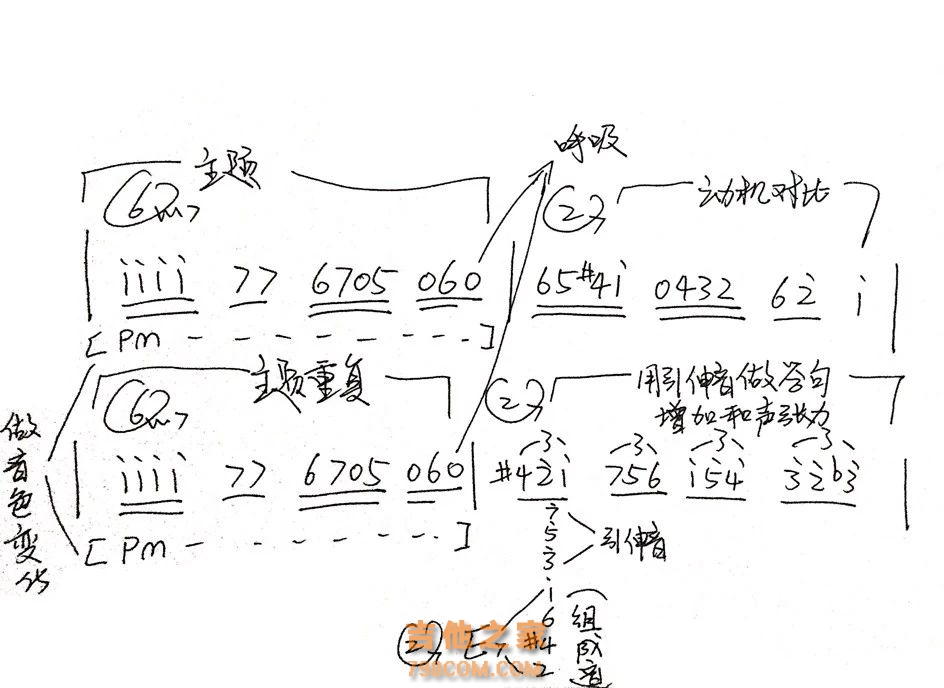 呼吸
主题
6m7
27
动机对比
i i i i 7 7 6 7 0 5 0 6 0 | 6 5 #4 i 0 4 3 2 6 2 i |
[ Pm - - - - - - - ]
主题重复
6m7
27
用引伸音做答句
增加和声张力
3 3 3 3
i i i i 7 7 6 7 0 5 0 6 0 | #4 2 i 7 5 6 i 5 4 3 2 b3 |
[ Pm - - - - - - ]
做音色变化
7
5
3
引伸音
i
6
#4
2
27
组成音
吉他之家
798COM.COM